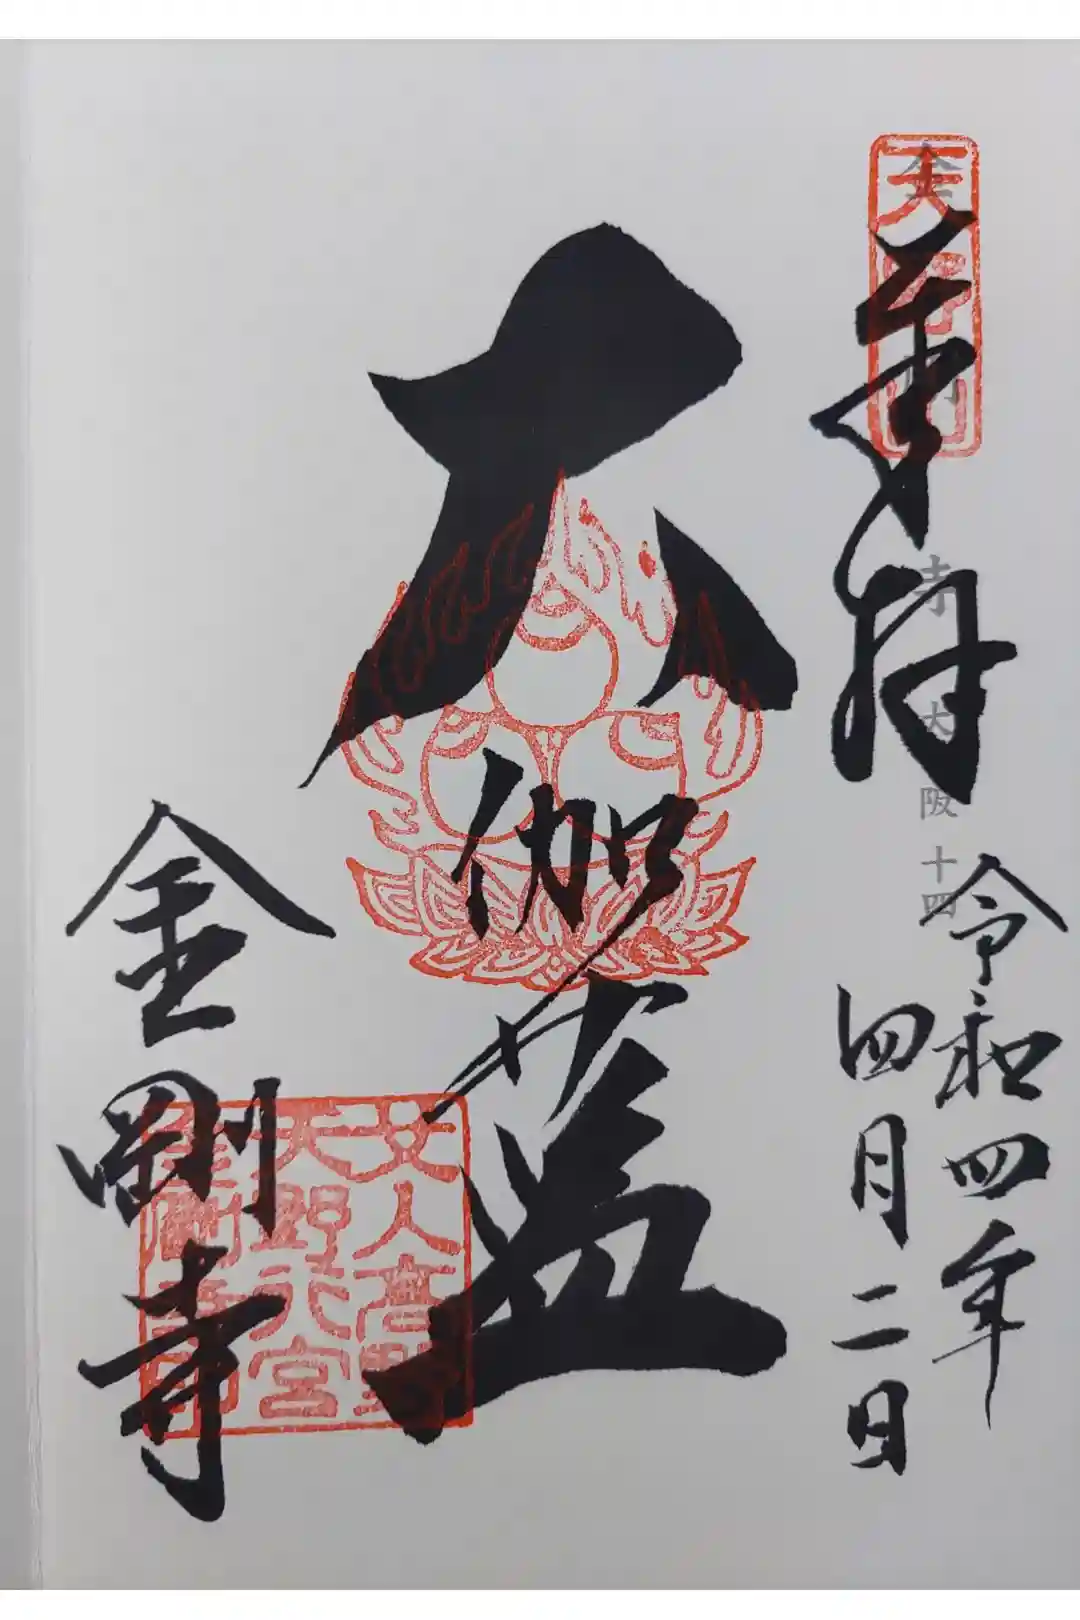 天野山
奉拝
金剛寺 大阪十四
令和四年
四月二日
大伽藍
女人高野
天野行宮
金剛寺印
金剛寺